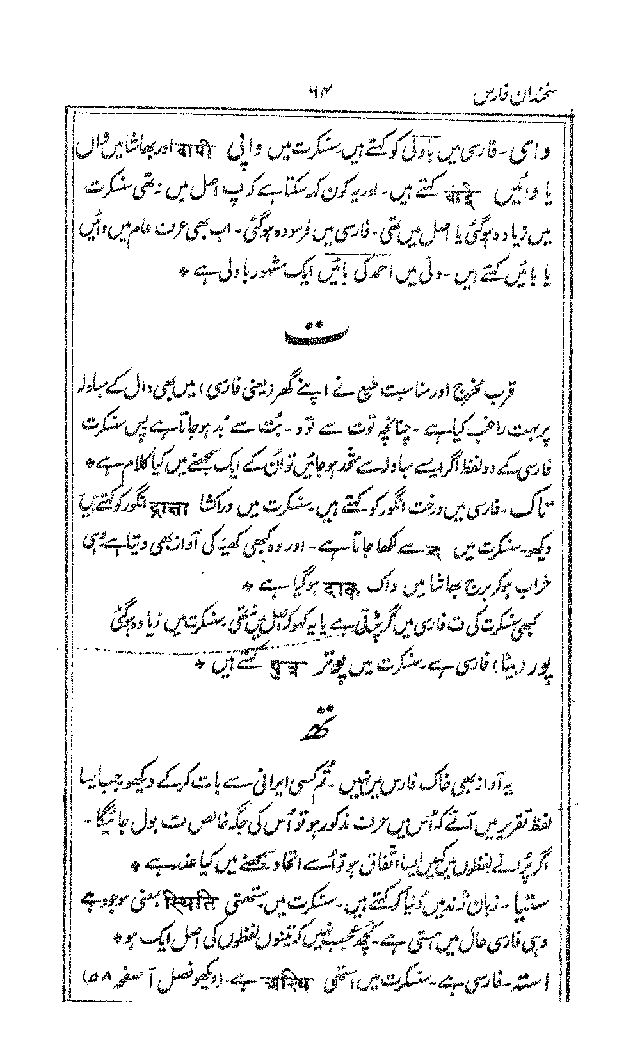 سخندان فارس ۶۴
وای - فارسی میں باؤلی کو کہتے ہیں سنسکرت میں واپی वापी اور بھاشا میں واں
یا وائیں वाइ کہتے ہیں - اور یہ کون کہ سکتا ہے کہ پ اصل میں نہ تھی سنسکرت
میں زیادہ ہو گئی یا اصل میں تھی - فارسی میں فرسودہ ہو گئی - اب بھی عرف عام میں وائیں
یا بائیں کہتے ہیں - دلی میں احمد کی بائیں ایک مشہور باولی ہے *
ت
قرب مخرج اور مناسبت طبع نے اپنے گھر (یعنی فارسی) میں بھی دال کے مبادلہ
پر بہت راغب کیا ہے - چنانچہ توت سے تود - بت سے بد ہو جاتا ہے پس سنسکرت
فارسی کے دو لفظ اگر ایسے مبادلے سے متحد ہو جائیں تو ان کے ایک سمجھنے میں کیا کلام ہے *
تاک - فارسی میں درخت انگور کو کہتے ہیں - سنسکرت میں دراکشا द्राक्षा انگور کو کہتے ہیں
دیکھو - سنسکرت میں سے لکھا جاتا ہے - اور وہ کبھی کھیہ کی آواز بھی دیتا ہے وہی
خراب ہو کر برج بھاشا میں داک दाक ہو گیا ہے *
کبھی سنسکرت کی ت فارسی میں گر پڑتی ہے یا یہ کہو کہ اصل میں نہ تھی سنسکرت میں زیادہ ہو گئی
پور (بیٹا) فارسی ہے سنسکرت میں پوتر पुत्र کہتے ہیں *
تھ
یہ آواز بھی خاک فارس میں نہیں - تم کسی ایرانی سے بات کر کے دیکھو جب ایسا
لفظ تقریر میں آئے کہ اس میں حرف مذکور ہو تو اس کی جگہ خالص ت بول جائیگا -
اگر پرانے لفظوں میں کہیں ایسا اتفاق ہو تو اسے اتحاد سمجھنے میں کیا عذر ہے *
ستیا - زبان ژند میں دنیا کو کہتے ہیں - سنسکرت میں ستھتی स्थिति بمعنی موجود ہے
وہی فارسی حال میں ہستی ہے - کچھ عجب نہیں کہ تینوں لفظوں کی اصل ایک ہو *
استہ - فارسی ہے - سنسکرت میں استھی अस्थि ہے - (دیکھو فصل آ صفحہ ۵۸)